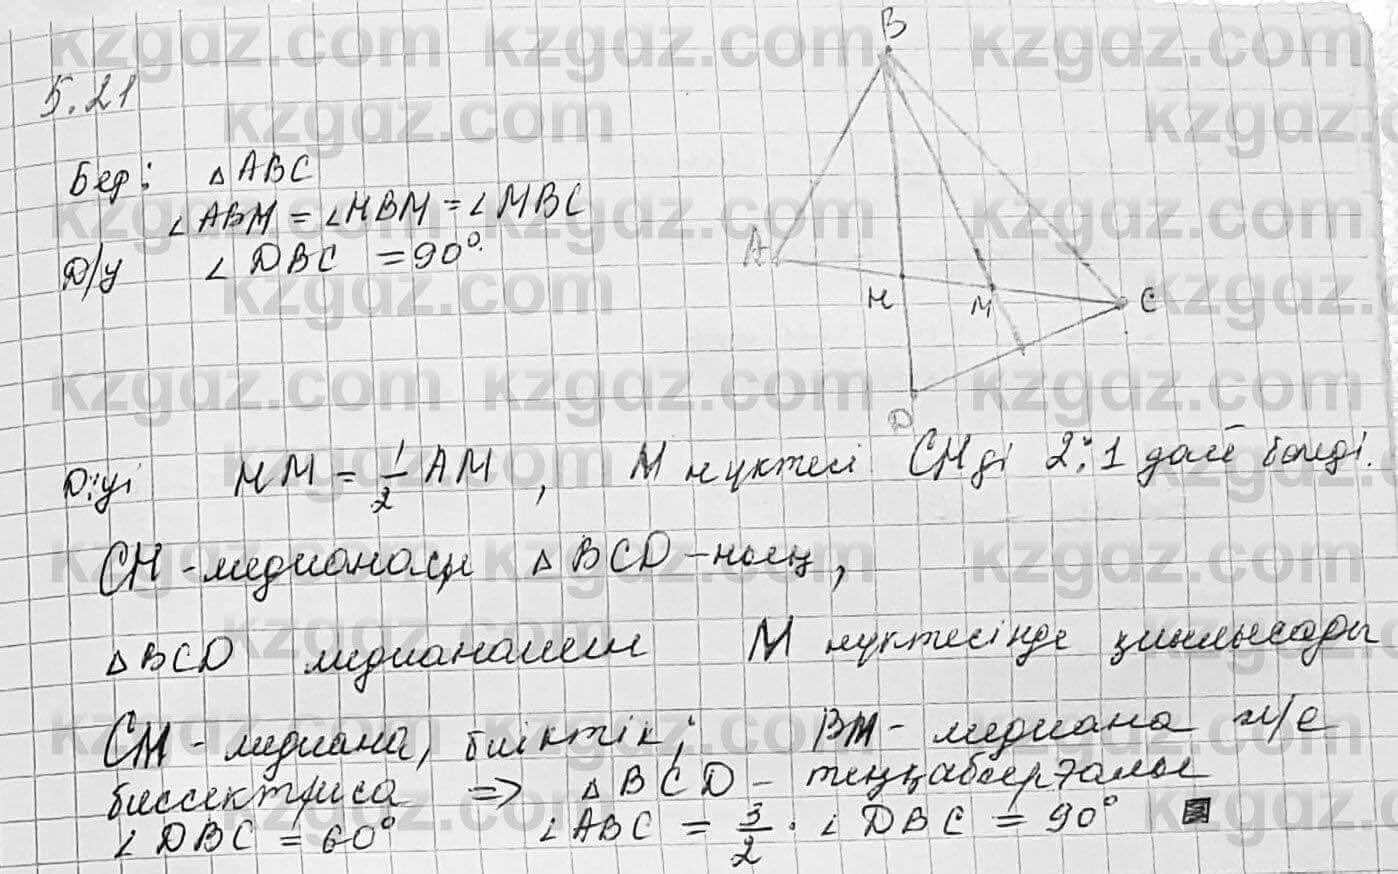 5.21
Бер: △ABC
∠ABH = ∠HBM = ∠MBC
Д/у ∠DBC = 90°.
B
A
H
M
C
D
Д:уі HM = 1/2 AM, M нүктесі CH ді 2:1 дей бөледі.
CH - медианасы △BCD-ның,
△BCD медианасы M нүктесінде қиылысады
CH - медиана, биіктік; BM - медиана ж/е
биссектриса => △BCD - теңқабырғалы
∠DBC = 60° ∠ABC = 3/2 · ∠DBC = 90°
kzgdz.com